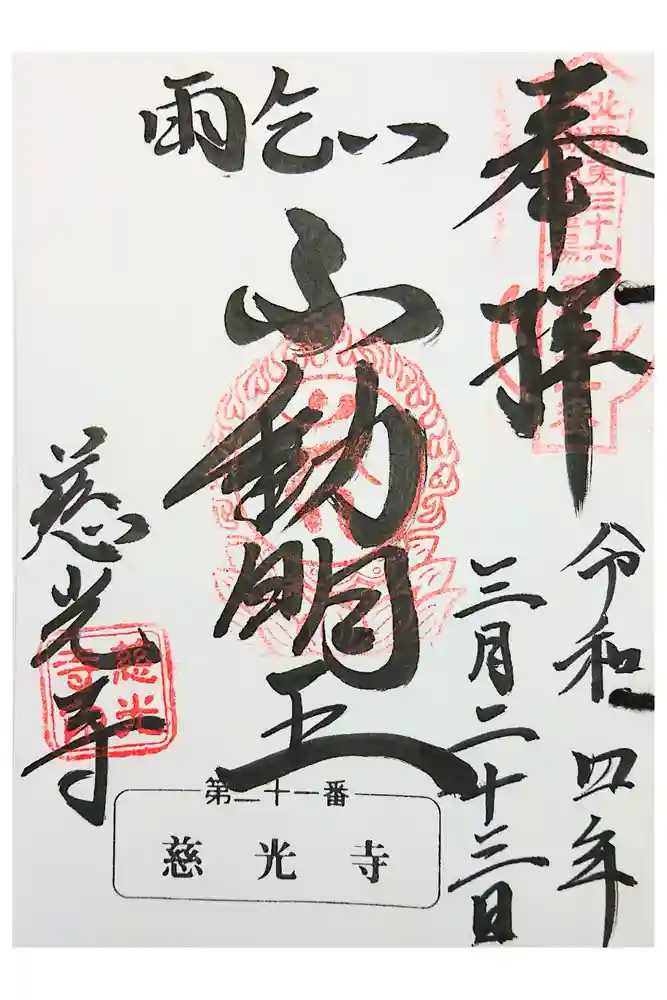 奉拝
北関東三十六
令和四年
三月二十三日
雨乞い
不動明王
慈光寺
慈光
寺
第二十一番
慈光寺